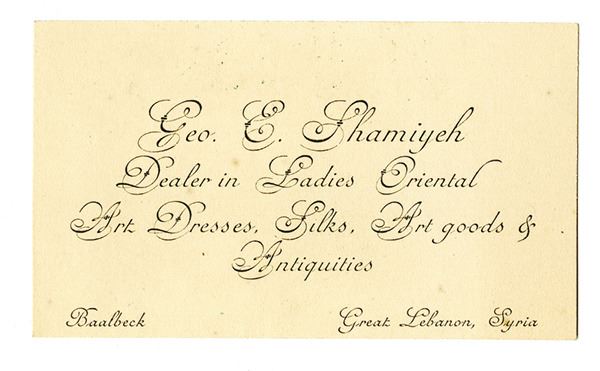 Geo. E. Shamiyeh
Dealer in Ladies Oriental
Art Dresses, Silks, Art goods &
Antiquities
Baalbeck Great Lebanon, Syria